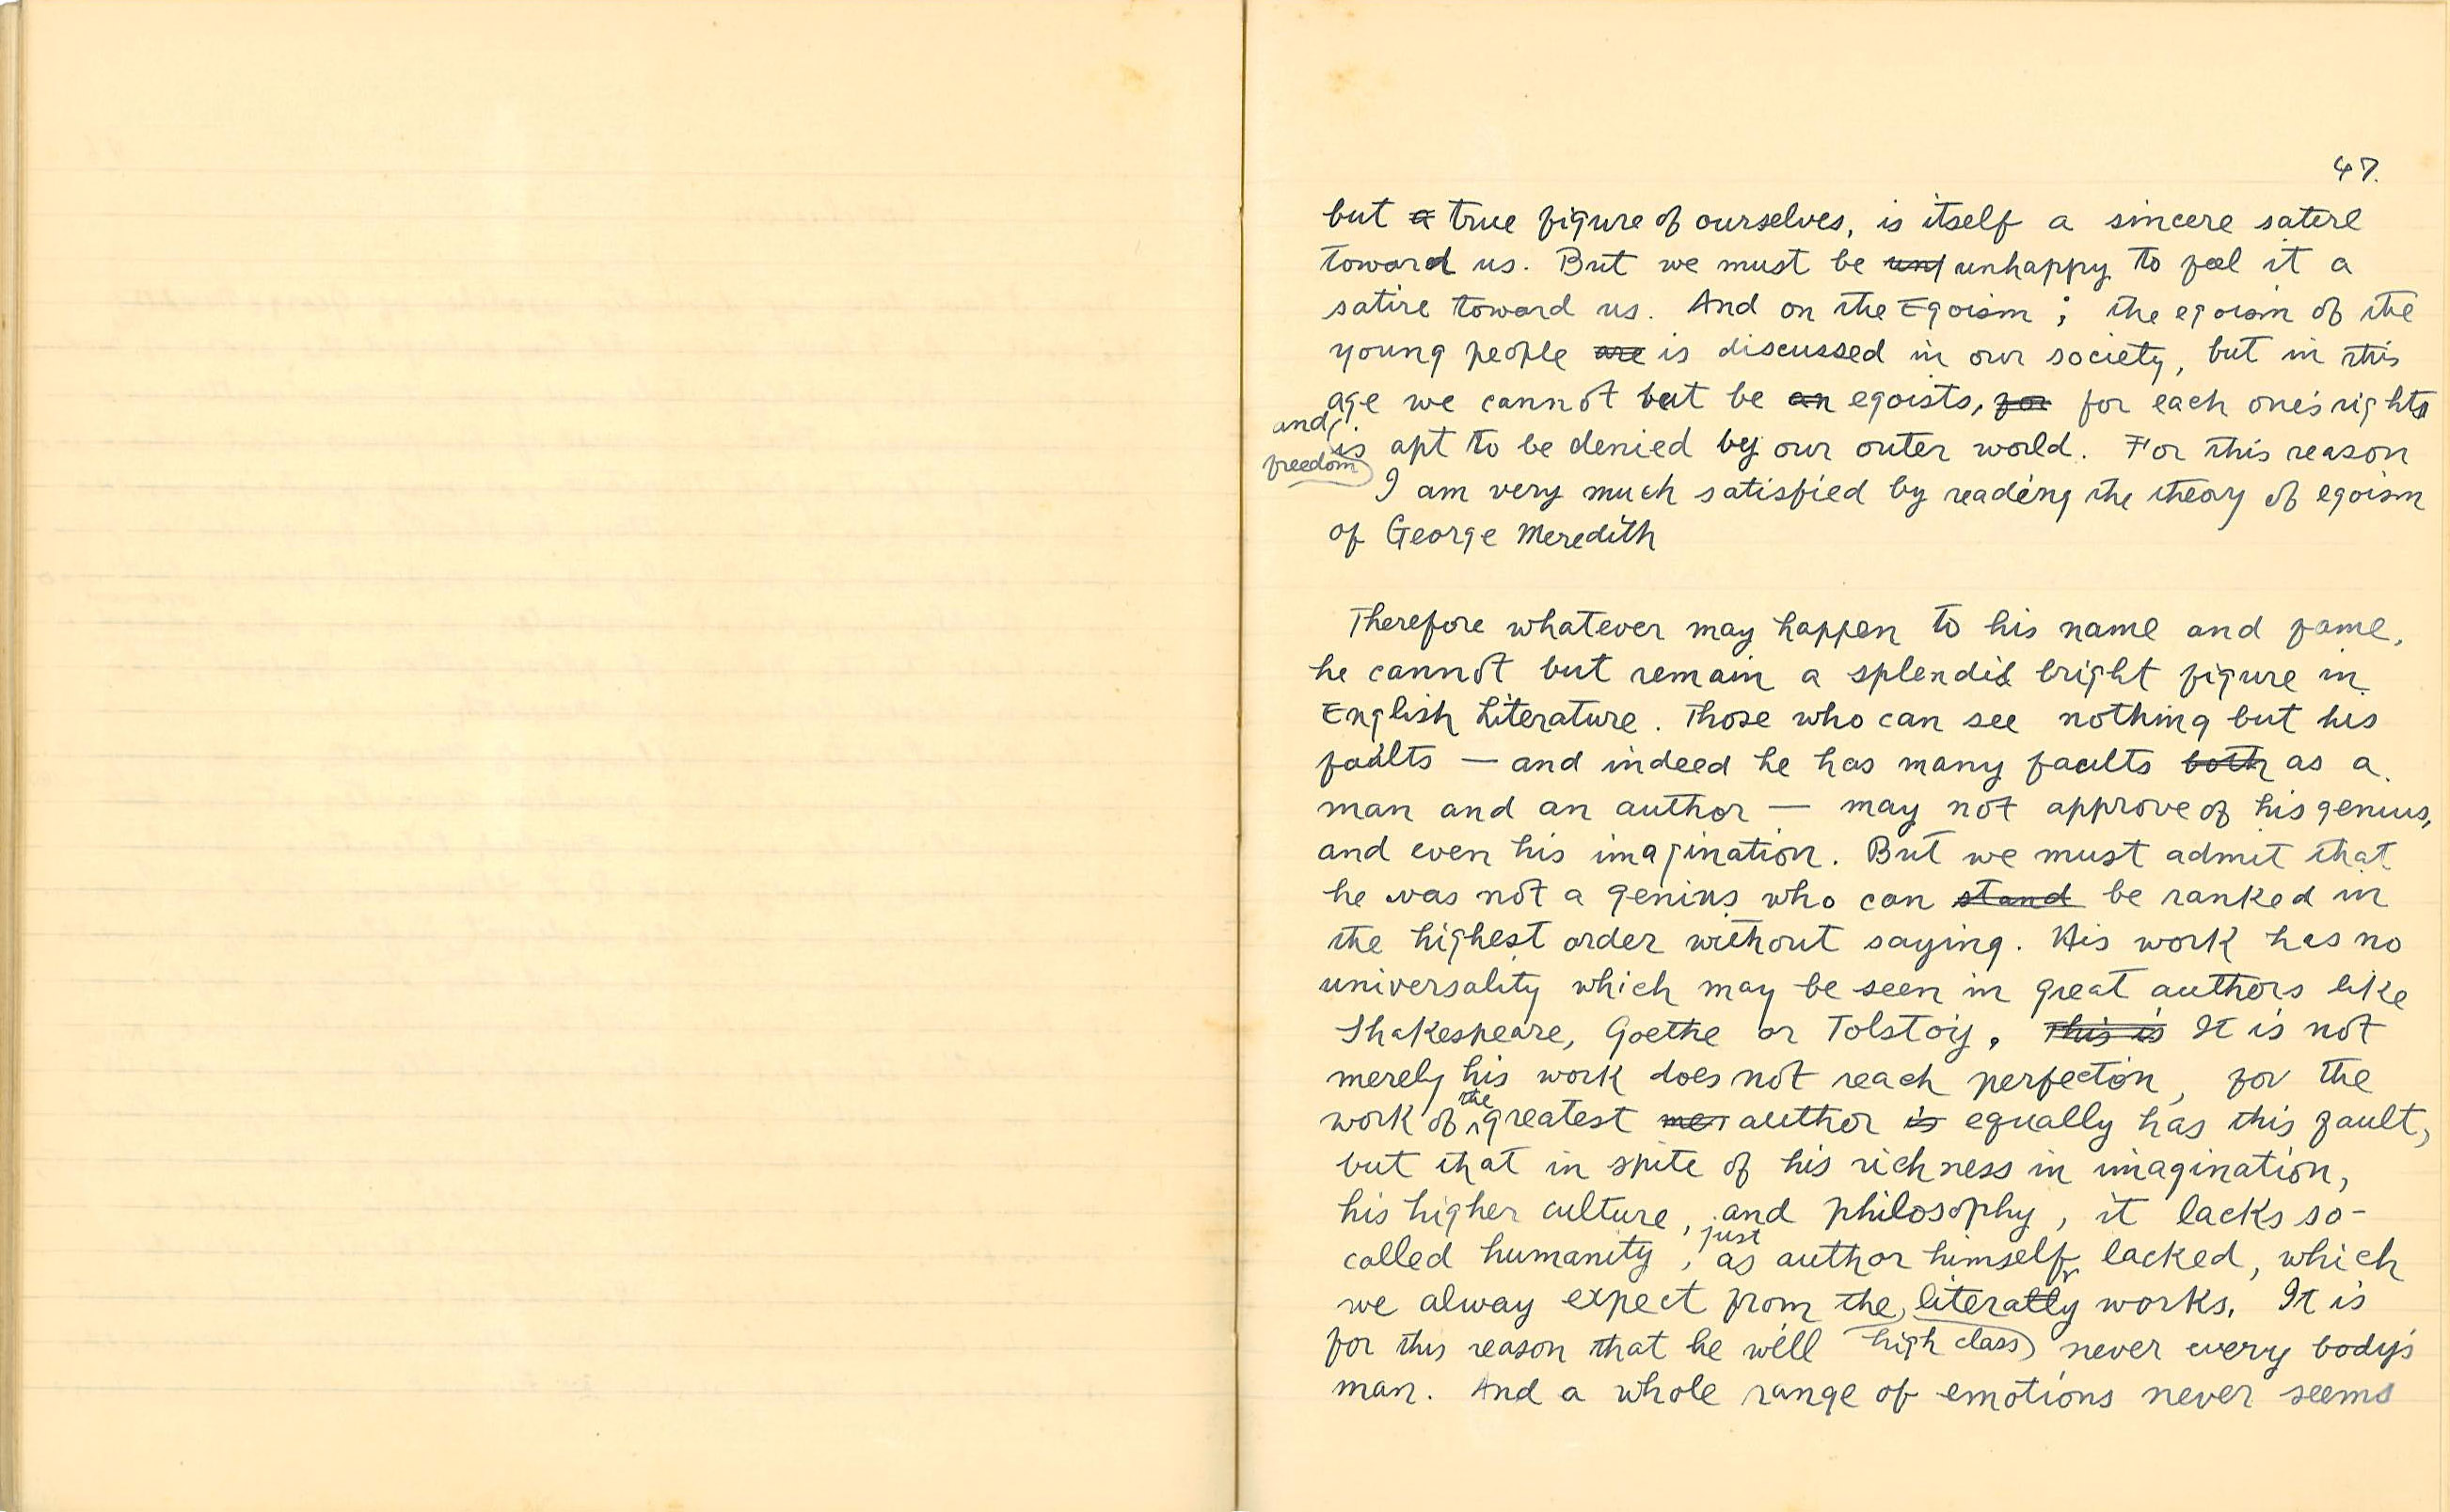 47.
but a true figure of ourselves, is itself a sincere satire
toward us. But we must be unf unhappy to feel it a
satire toward us. And on the Egoism; the egoism of the
young people are is discussed in our society, but in this
age we cannot but be an egoists, for for each one's rights
and freedom
is apt to be denied by our outer world. For this reason
I am very much satisfied by reading the theory of egoism
of George Meredith
Therefore whatever may happen to his name and fame,
he cannot but remain a splendid bright figure in
English Literature. Those who can see nothing but his
faults — and indeed he has many faults both as a
man and an author — may not approve of his genius,
and even his imagination. But we must admit that
he was not a genius who can stand be ranked in
the highest order without saying. His work has no
universality which may be seen in great authors like
Shakespeare, Goethe or Tolstoiy. This is It is not
merely his work does not reach perfection, for the
work of the greatest author is equally has this fault,
but that in spite of his richness in imagination,
his higher culture, and philosophy, it lacks so-
called humanity, just as author himself lacked, which
we alway expect from the high class literary works. It is
for this reason that he will never every body's
man. And a whole range of emotions never seems